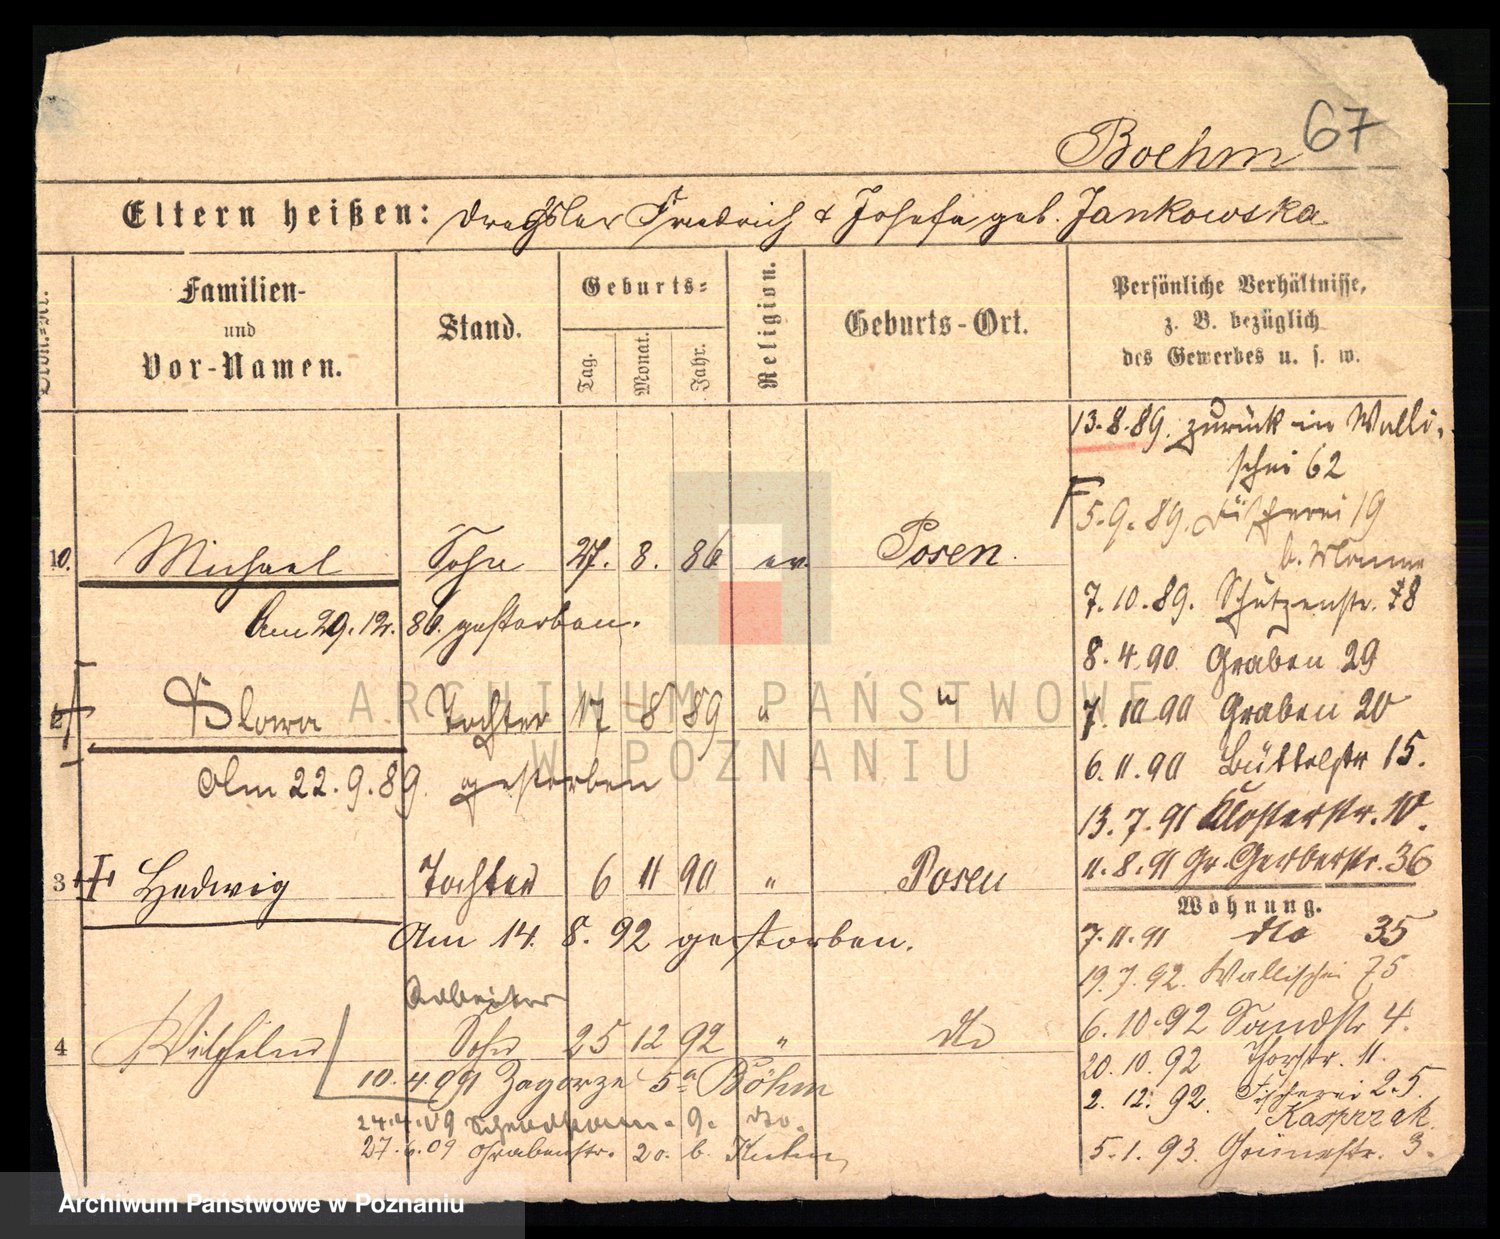 67
Boehm
Eltern heißen: Drechsler Friedrich & Josefa geb. Jankowska
Familien-
und
Vor-Namen.
Stand.
Geburts-
Tag.
Monat.
Jahr.
Religion.
Geburts-Ort.
Persönliche Verhältnisse,
z. B. bezüglich
des Gewerbes u. s. w.
13.8.89. zurück in Walli-
schei 62
5.9.89. Fischerei 19
10. Michael Sohn 27. 8. 86 ev. Posen.
7.10.89. Schützenstr. 78
Am 29.12. 86. gestorben.
8.4.90 Graben 29
Tochter 17 8 89 " "
7.10.90 Graben 20
6.11.90 Büttelstr 15.
Am 22.9.89. gestorben
13.7.91 Klosterstr. 10.
11.8.91 Gr. Gerberstr. 36
3 Hedwig Tochter 6 11 90 " Posen
Wohnung.
Am 14. 8. 92 gestorben.
7.11.91 dto 35
19.7.92. Wallischei 75
Arbeiter
6.10.92 Sandstr 4.
4 Wilhelm Sohn 25 12 92 " dto
20.10.92 Thorstr. 11.
10.4.09 Zagorze 5a Böhm
2.12.92. Fischerei 25.
Kasprzak.
24.4.09 9.
27.6.09 Grabenstr. 20. b.
5.1.93. Grünestr. 3.
ARCHIWUM PAŃSTWOWE
W POZNANIU
Archiwum Państwowe w Poznaniu